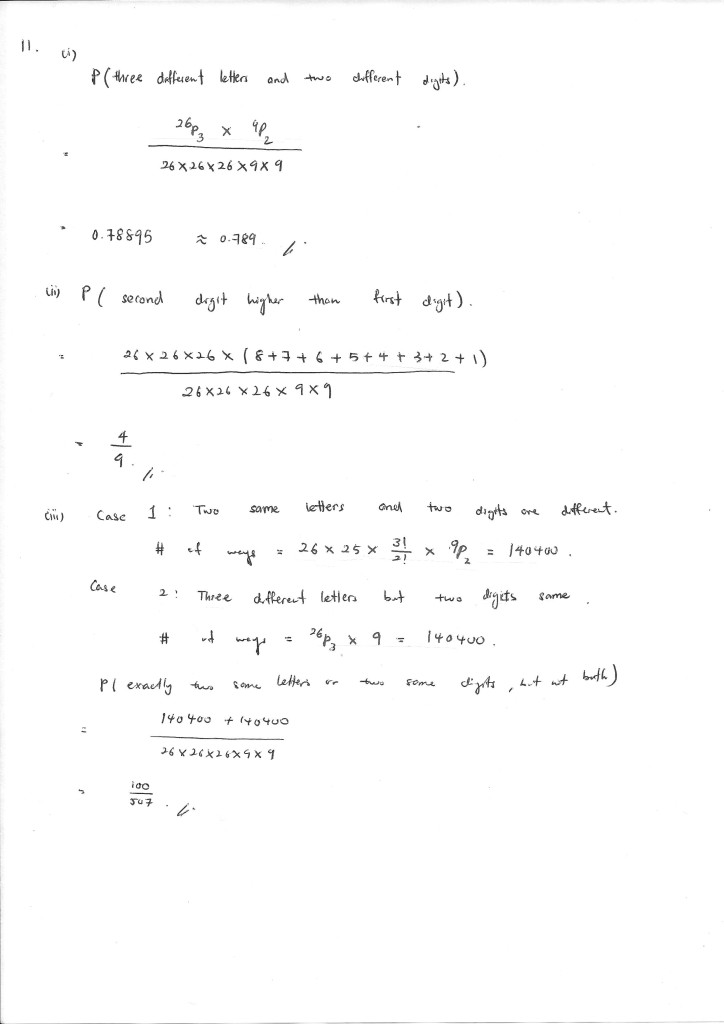 11. (i)
P(three different letters and two different digits).
= (²⁶P₃ × ⁹P₂) / (26×26×26×9×9)
= 0.78895 ≈ 0.789 //.
(ii) P( second digit higher than first digit).
= (26×26×26×(8+7+6+5+4+3+2+1)) / (26×26×26×9×9)
= 4/9. //.
(iii) Case 1 : Two same letters and two digits are different.
# of ways = 26 × 25 × 3!/2! × ⁹P₂ = 140400.
Case 2 : Three different letters but two digits same.
# of ways = ²⁶P₃ × 9 = 140400.
P( exactly two same letters or two same digits, but not both)
= (140400 + 140400) / (26×26×26×9×9)
= 100/507. //.